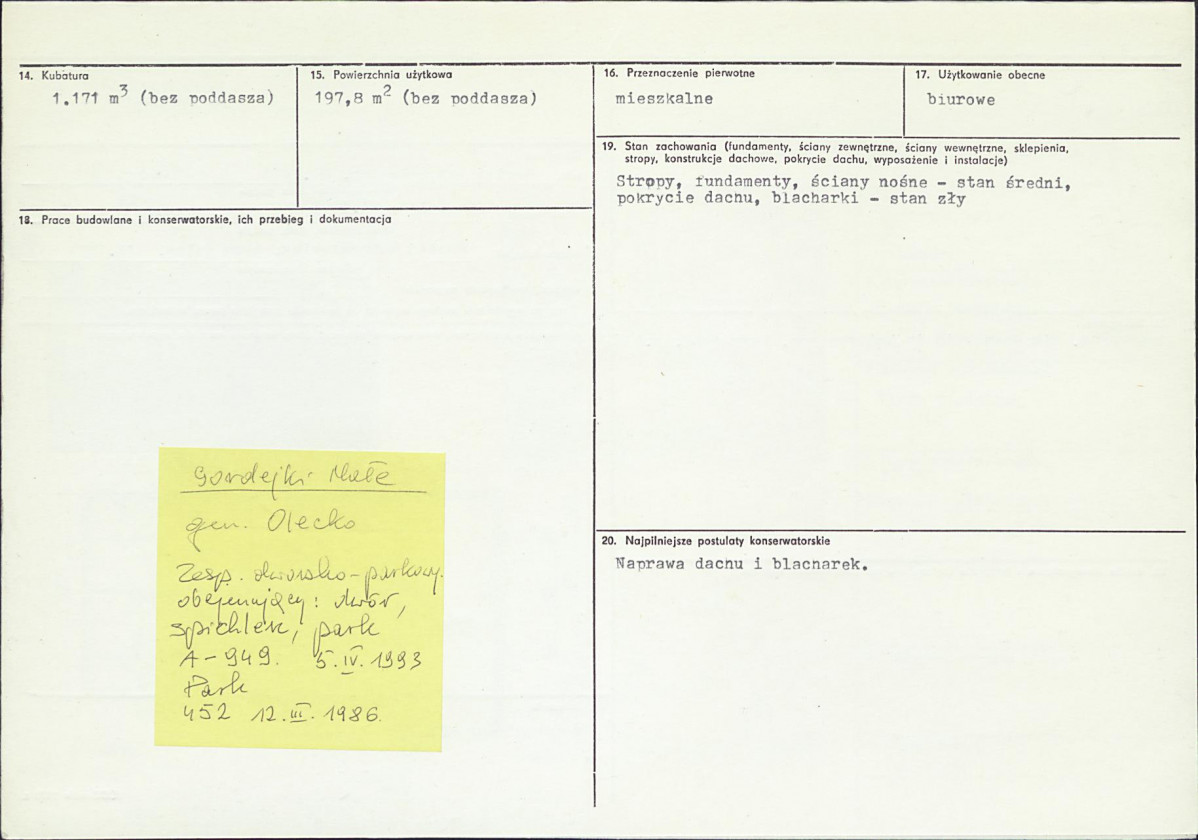 14. Kubatura
1.171 m³ (bez poddasza)
15. Powierzchnia użytkowa
197,8 m² (bez poddasza)
16. Przeznaczenie pierwotne
mieszkalne
17. Użytkowanie obecne
biurowe
18. Prace budowlane i konserwatorskie, ich przebieg i dokumentacja
Gordejki Małe
gm. Olecko
Zesp. dworsko-parkowy
obejmujący: dwór,
spichlerz, park
A-949. 5.IV.1993
Park
452 12.III.1986.
19. Stan zachowania (fundamenty, ściany zewnętrzne, ściany wewnętrzne, sklepienia,
stropy, konstrukcje dachowe, pokrycie dachu, wyposażenie i instalacje)
Stropy, fundamenty, ściany nośne - stan średni,
pokrycie dachu, blacharki - stan zły
20. Najpilniejsze postulaty konserwatorskie
Naprawa dachu i blacharek.